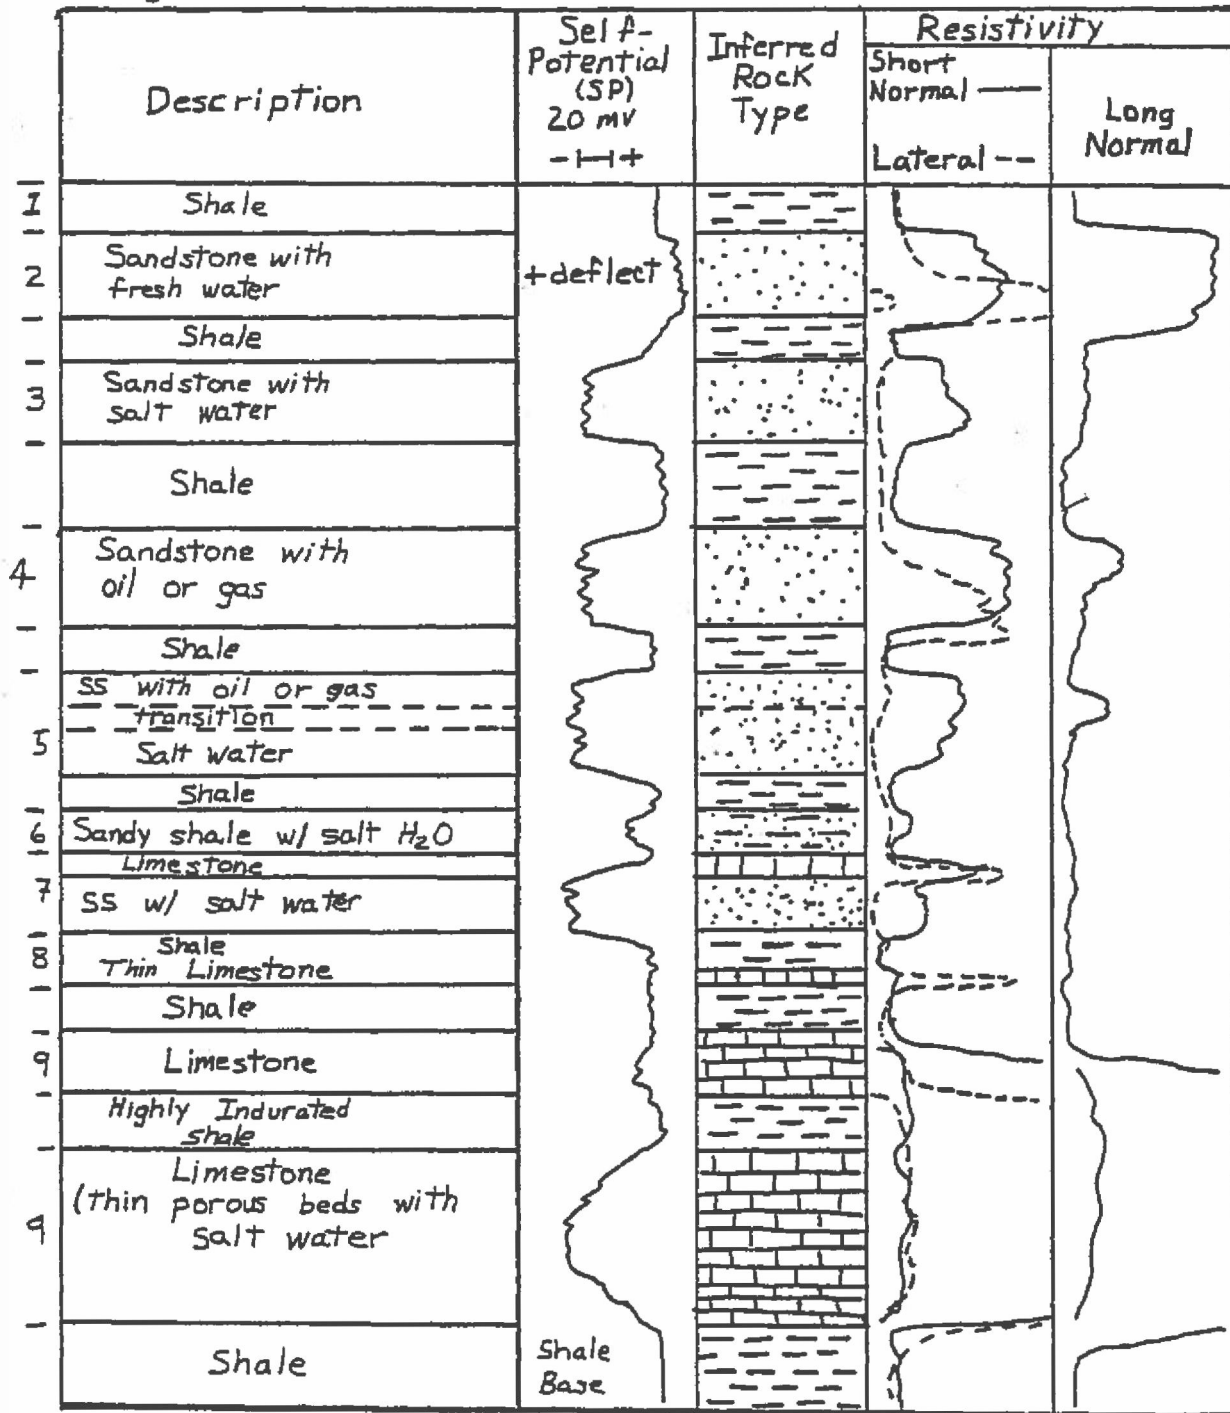 Description
Self-
Potential
(SP)
20 mv
- +
Inferred
Rock
Type
Resistivity
Short
Normal
Lateral
Long
Normal
1
Shale
2
Sandstone with
fresh water
+deflect
Shale
3
Sandstone with
salt water
Shale
4
Sandstone with
oil or gas
Shale
SS with oil or gas
transition
5
Salt water
Shale
6
Sandy shale w/ salt H₂O
Limestone
7
SS w/ salt water
8
Shale
Thin Limestone
Shale
9
Limestone
Highly Indurated
shale
9
Limestone
(thin porous beds with
salt water
Shale
Shale
Base